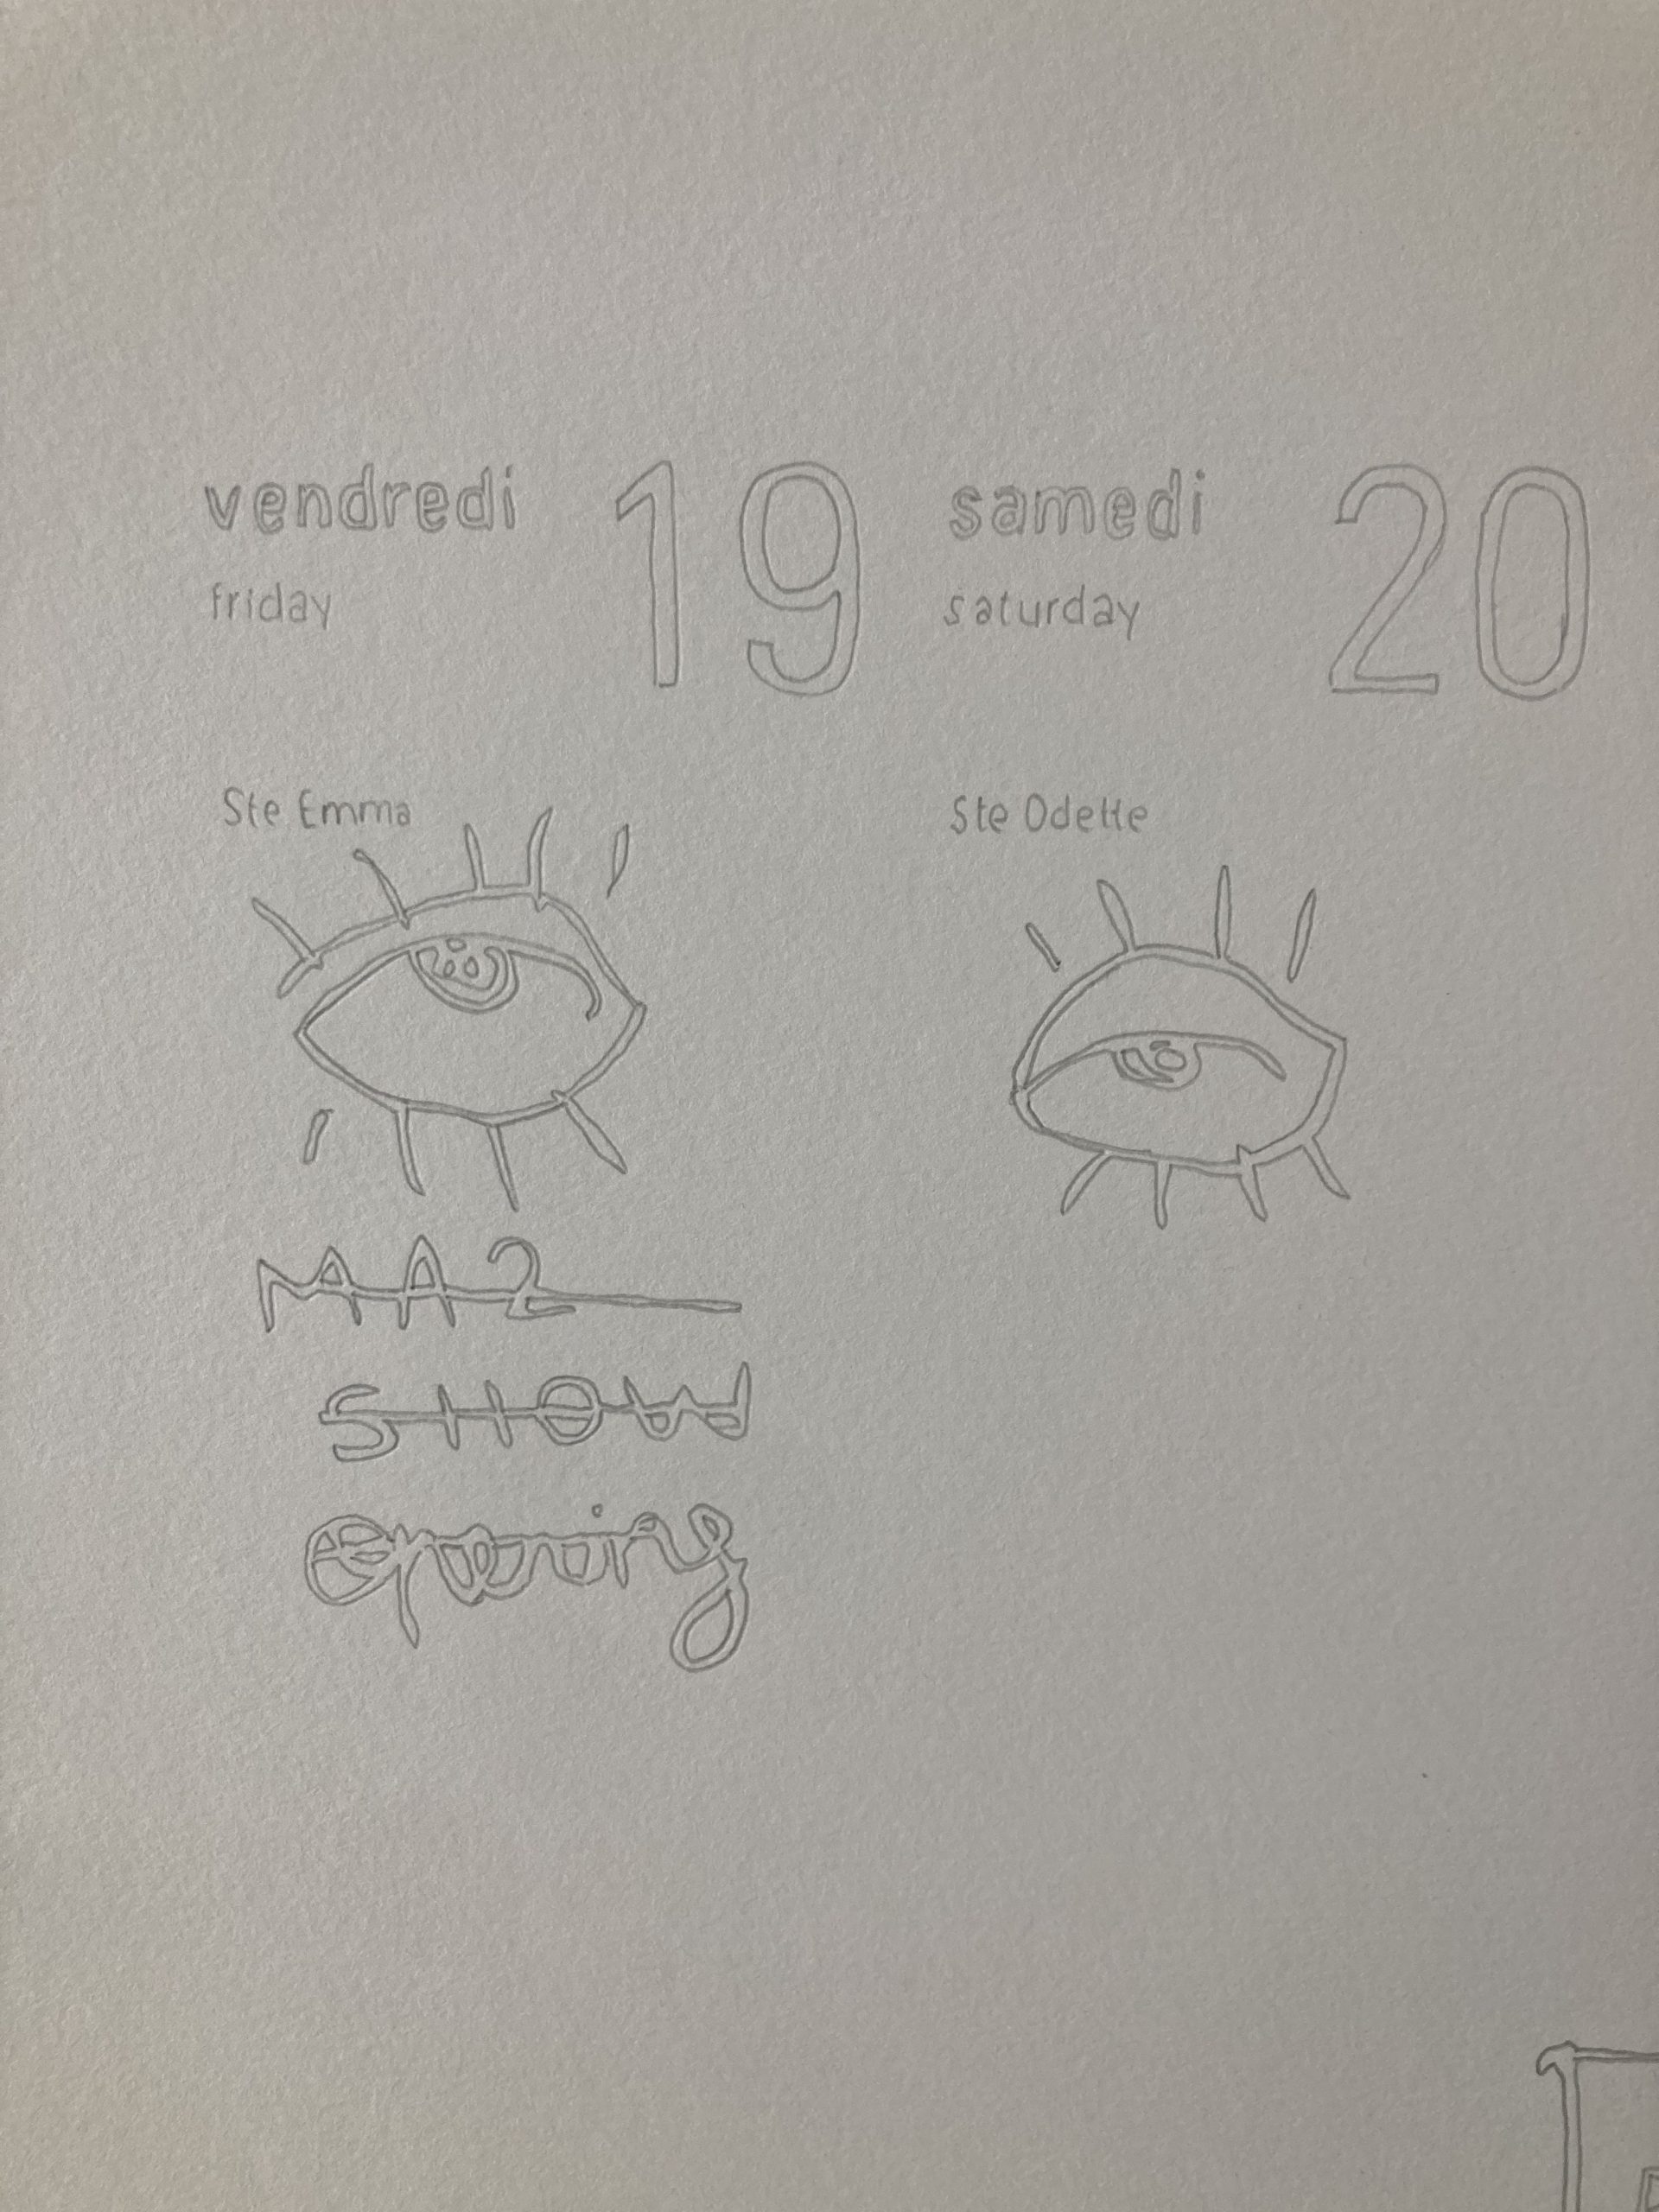 vendredi 19
friday
Ste Emma
MA2
SHOW
Opening
samedi 20
saturday
Ste Odette